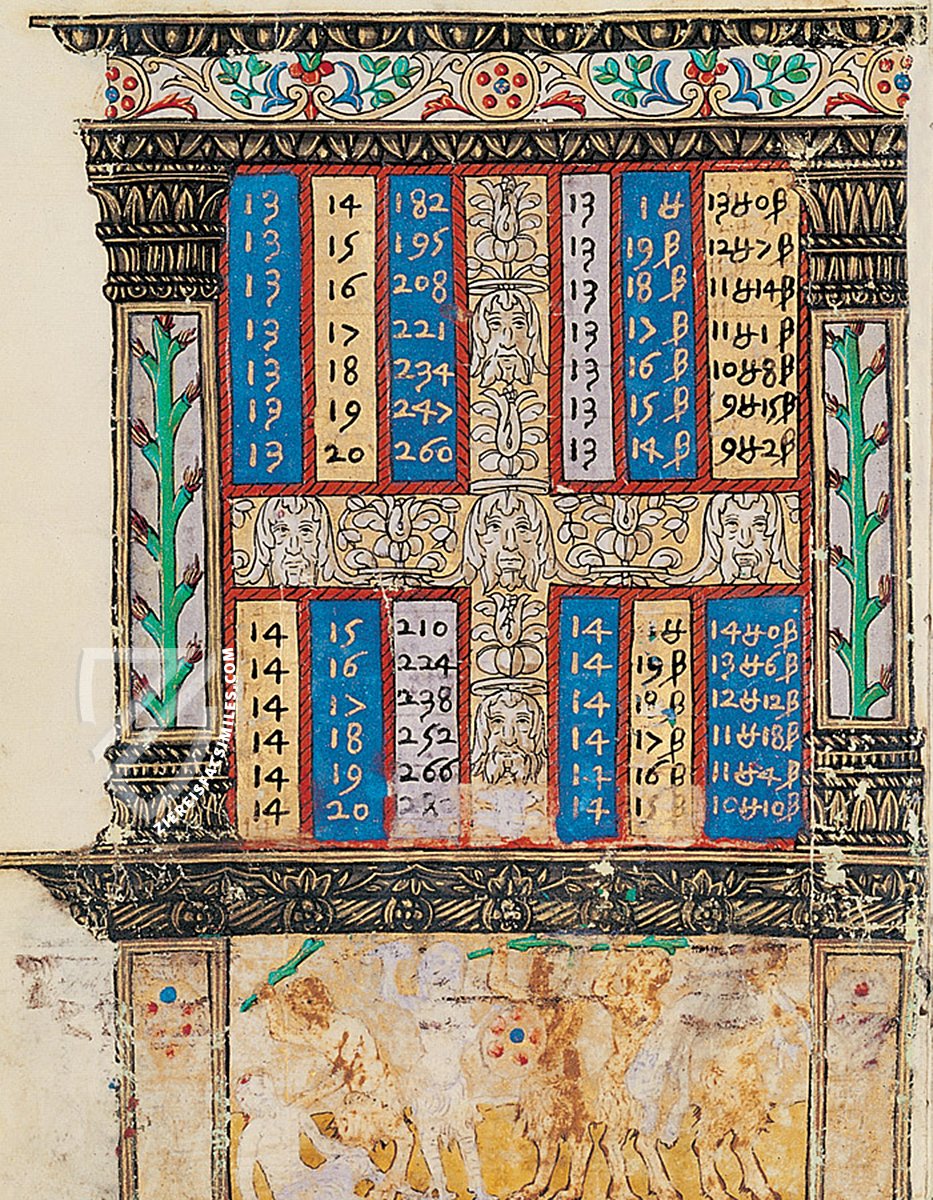 13 14 182 13 1ʉ 13ʉ0β
13 15 195 13 19β 12ʉ7β
13 16 208 13 18β 11ʉ14β
13 17 221 13 17β 11ʉ1β
13 18 234 13 16β 10ʉ8β
13 19 247 13 15β 9ʉ15β
13 20 260 13 14β 9ʉ2β
14 15 210 14 1ʉ 14ʉ0β
14 16 224 14 19β 13ʉ6β
14 17 238 14 18β 12ʉ12β
14 18 252 14 17β 11ʉ18β
14 19 266 14 16β 11ʉ4β
14 20 14 15β 10ʉ10β
ZIEREISFACSIMILES.COM